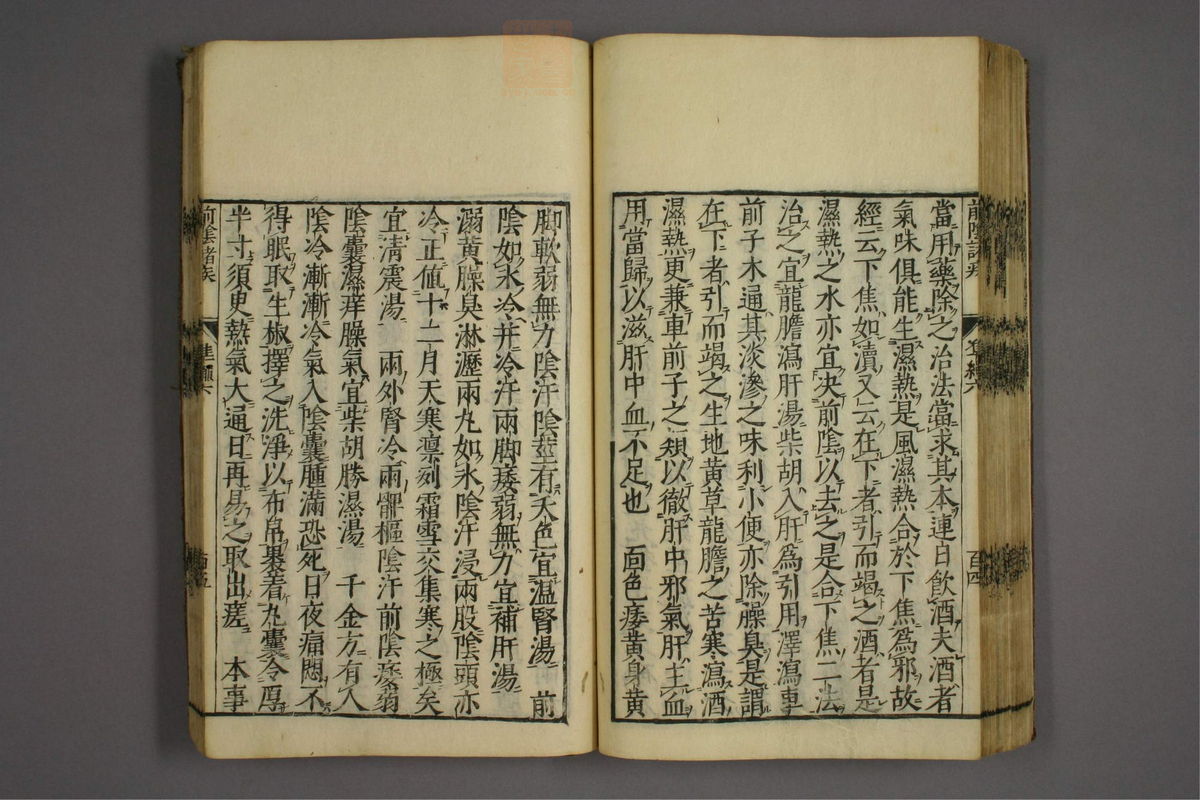 當用藥除之治法當求其本連日飲酒夫酒者
氣味俱能生濕熱是風濕熱合於下焦為邪故
經云下焦如瀆又云在下者引而竭之酒者是
濕熱之水亦宜决前陰以去之是合下焦二法
治之宜龍膽瀉肝湯柴胡入肝為引用澤瀉車
前子木通其淡滲之味利小便亦除臊臭是謂
在下者引而竭之生地黄草龍膽之苦寒瀉酒
濕熱更兼車前子之類以徹肝中邪氣肝主血
用當歸以滋肝中血不足也 面色痿黄身黄
脚軟弱無力陰汗陰莖有夭色宜温腎湯 前
陰如氷冷并冷汗兩脚痿弱無力宜補肝湯
溺黄臊臭淋瀝兩丸如氷陰汗浸兩股陰頭亦
冷正值十二月天寒凛冽霜雪交集寒之極矣
宜清震湯 兩外腎冷兩髀樞陰汗前陰痿弱
陰囊濕痒臊氣宜柴胡勝濕湯 千金方有人
陰冷漸漸冷氣入陰囊腫滿恐死日夜痛悶不
得眠取生椒擇之洗淨以布帛裹着丸囊令厚
半寸須更熱氣大通日再易之取出瘥 本事
前陰諸疾
百四
前陰諸疾
百五